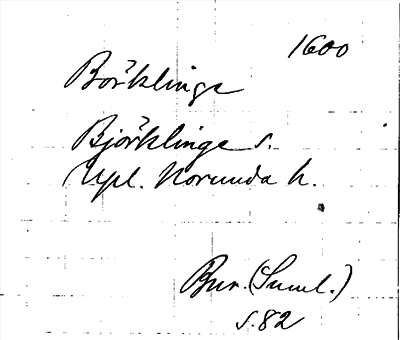 1600
Börklinge
Björklinge s.
Upl. Norunda h.
Bur. (Suml.)
s. 82